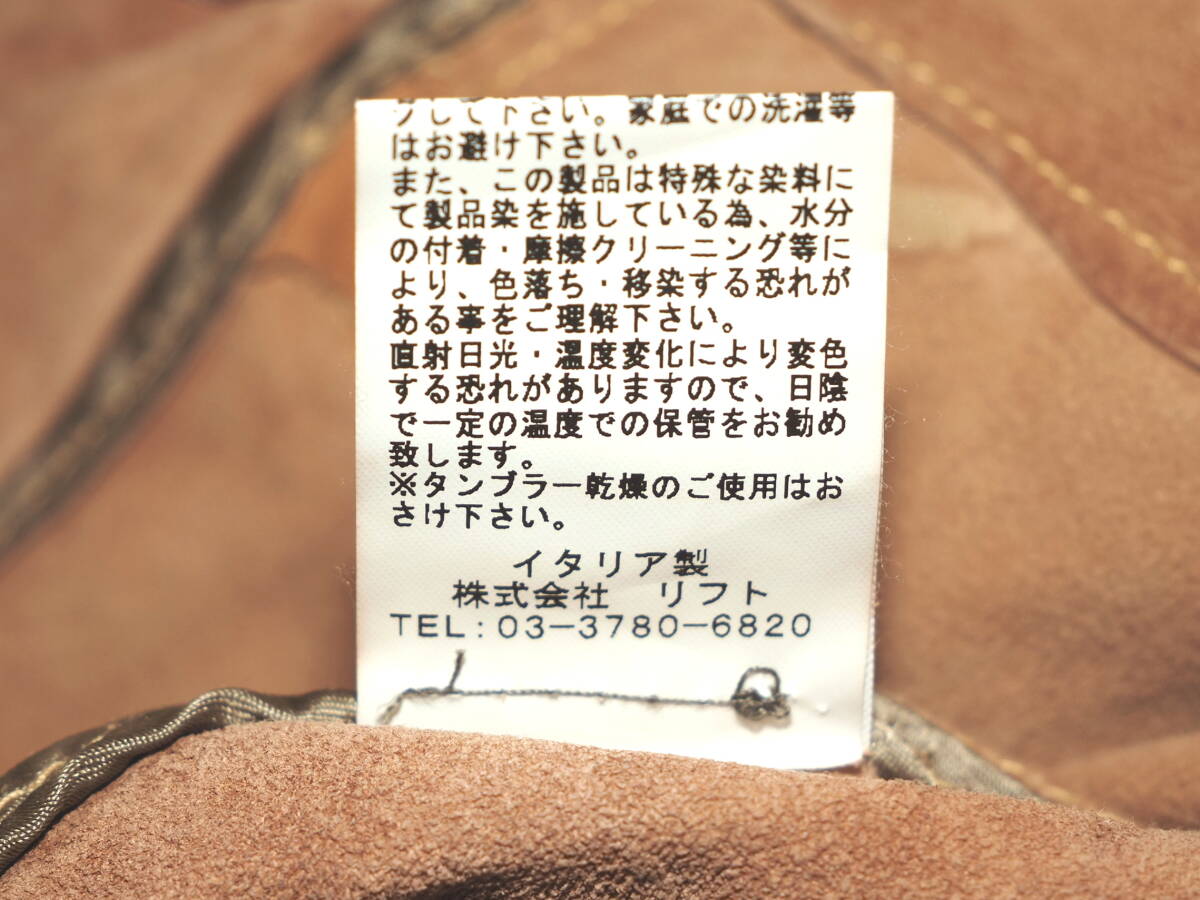 して下さい。家庭での洗濯等
はお避け下さい。
また、この製品は特殊な染料に
て製品染を施している為、水分
の付着・摩擦クリーニング等に
より、色落ち・移染する恐れが
ある事をご理解下さい。
直射日光・温度変化により変色
する恐れがありますので、日陰
で一定の温度での保管をお勧め
致します。
※タンブラー乾燥のご使用はお
さけ下さい。
イタリア製
株式会社　リフト
TEL:03-3780-6820